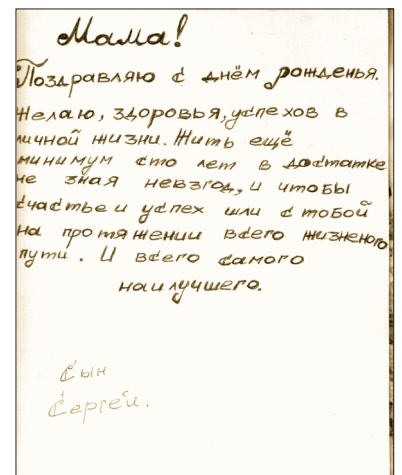 Мама!
Поздравляю с днём рожденья.
Желаю, здоровья, успехов в
личной жизни. Жить ещё
минимум сто лет в достатке
не зная невзгод, и чтобы
счастье и успех шли с тобой
на протяжении всего жизненого
пути. И всего самого
наилучшего.
Сын
Сергей.